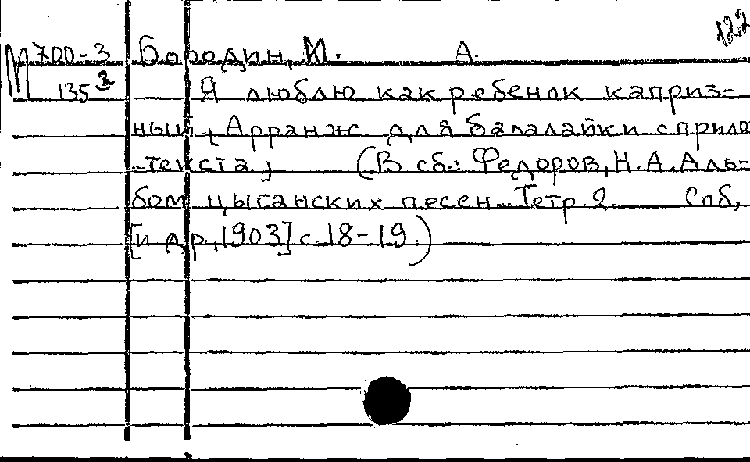 122
М 700-3 Бородин, М. А.
135 2 Я люблю как ребенок каприз-
ный, Арранж для балалайки с прило
текста, (В сб.: Федоров, Н.А. Аль-
бом цыганских песен Тетр 2 Спб,
[и др., 1903] с. 18-19.)